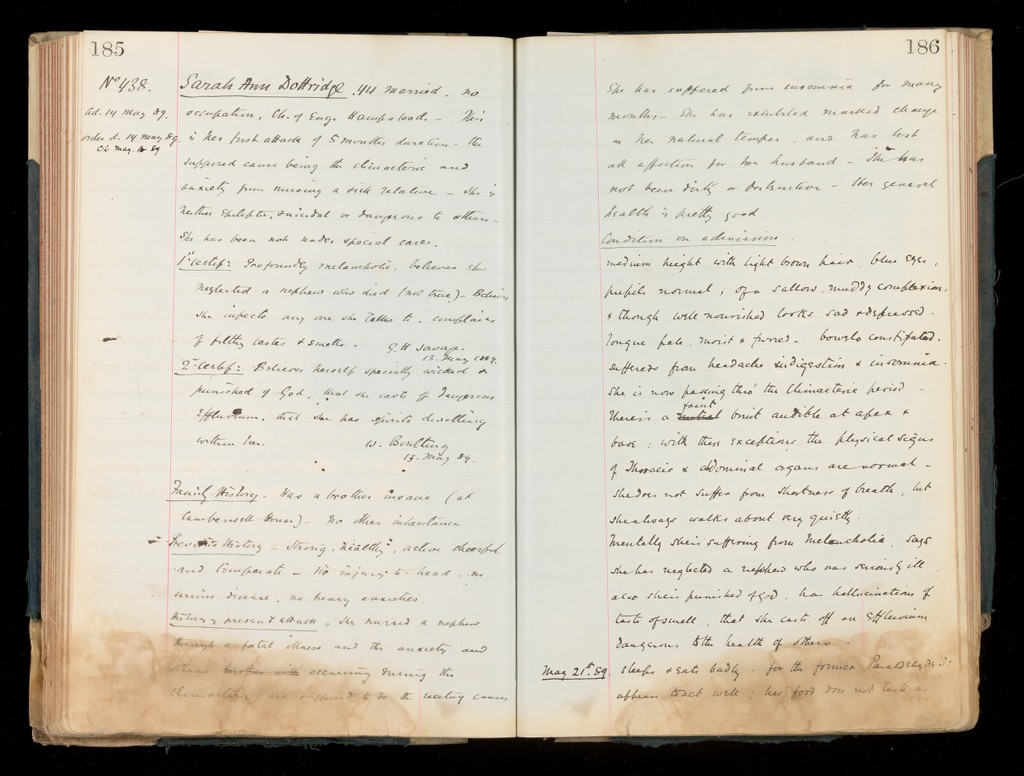 185
No 438.
Ad. 14 May 89.
order d. 14 May 89
Sarah Ann Dottridge, 44 married. no
occupation, Ch. of Eng. Hampstead. - This
is her first attack of 5 months duration - the
supposed cause being the climacteric and
anxiety from nursing a sick relative - She is
neither Epileptic, suicidal or dangerous to others -
She has been not under special care.
1st Certif: Profoundly melancholic, believes she
neglected a nephew who died (not true) - Believes
she infects any one she talks to. complains
of filthy tastes & smells. - G. H. Savage.
13. May 89.
2nd Certif: Believes herself specially wicked &
punished of God, that she casts off dangerous
Effluvium, that she has spirits dwelling
within her. W. Boulting
13. May 89.
Family History. Has a brother insane (at
Camberwell House) - No other inheritance
Previous History - Strong, healthy, active cheerful
and temperate - No injury to head. no
serious disease, no heavy anxieties.
History of present attack. She nursed a nephew
through a fatal illness and the anxiety and
occurring during the
Climacteric are supposed to be the exciting causes
186
She has suffered from insomnia for many
months - She has exhibited marked change
in her natural temper and has lost
all affection for her husband - She has
not been dirty or destructive - Her general
health is pretty good
Condition on admission.
medium height with light brown hair, blue eyes,
pupils normal; of a sallow muddy complexion,
& though well nourished looks sad & depressed.
Tongue pale moist & furred - bowels constipated.
suffers from headache indigestion & insomnia.
She is now passing thro' the Climacteric period -
There is a faint bruit audible at apex &
base; with these exceptions the physical signs
of Thoracic & abdominal organs are normal -
she does not suffer from shortness of breath, but
she always walks about very quietly.
Mentally she is suffering from Melancholia, says
she has neglected a nephew who was seriously ill
also she is punished of God, has hallucinations of
taste & smell, that she casts off an Effluvium
dangerous to the health of others -
May 21st 89. Sleeps & eats badly - for the former Paraldehyde
appears to act well; her food does not taste as